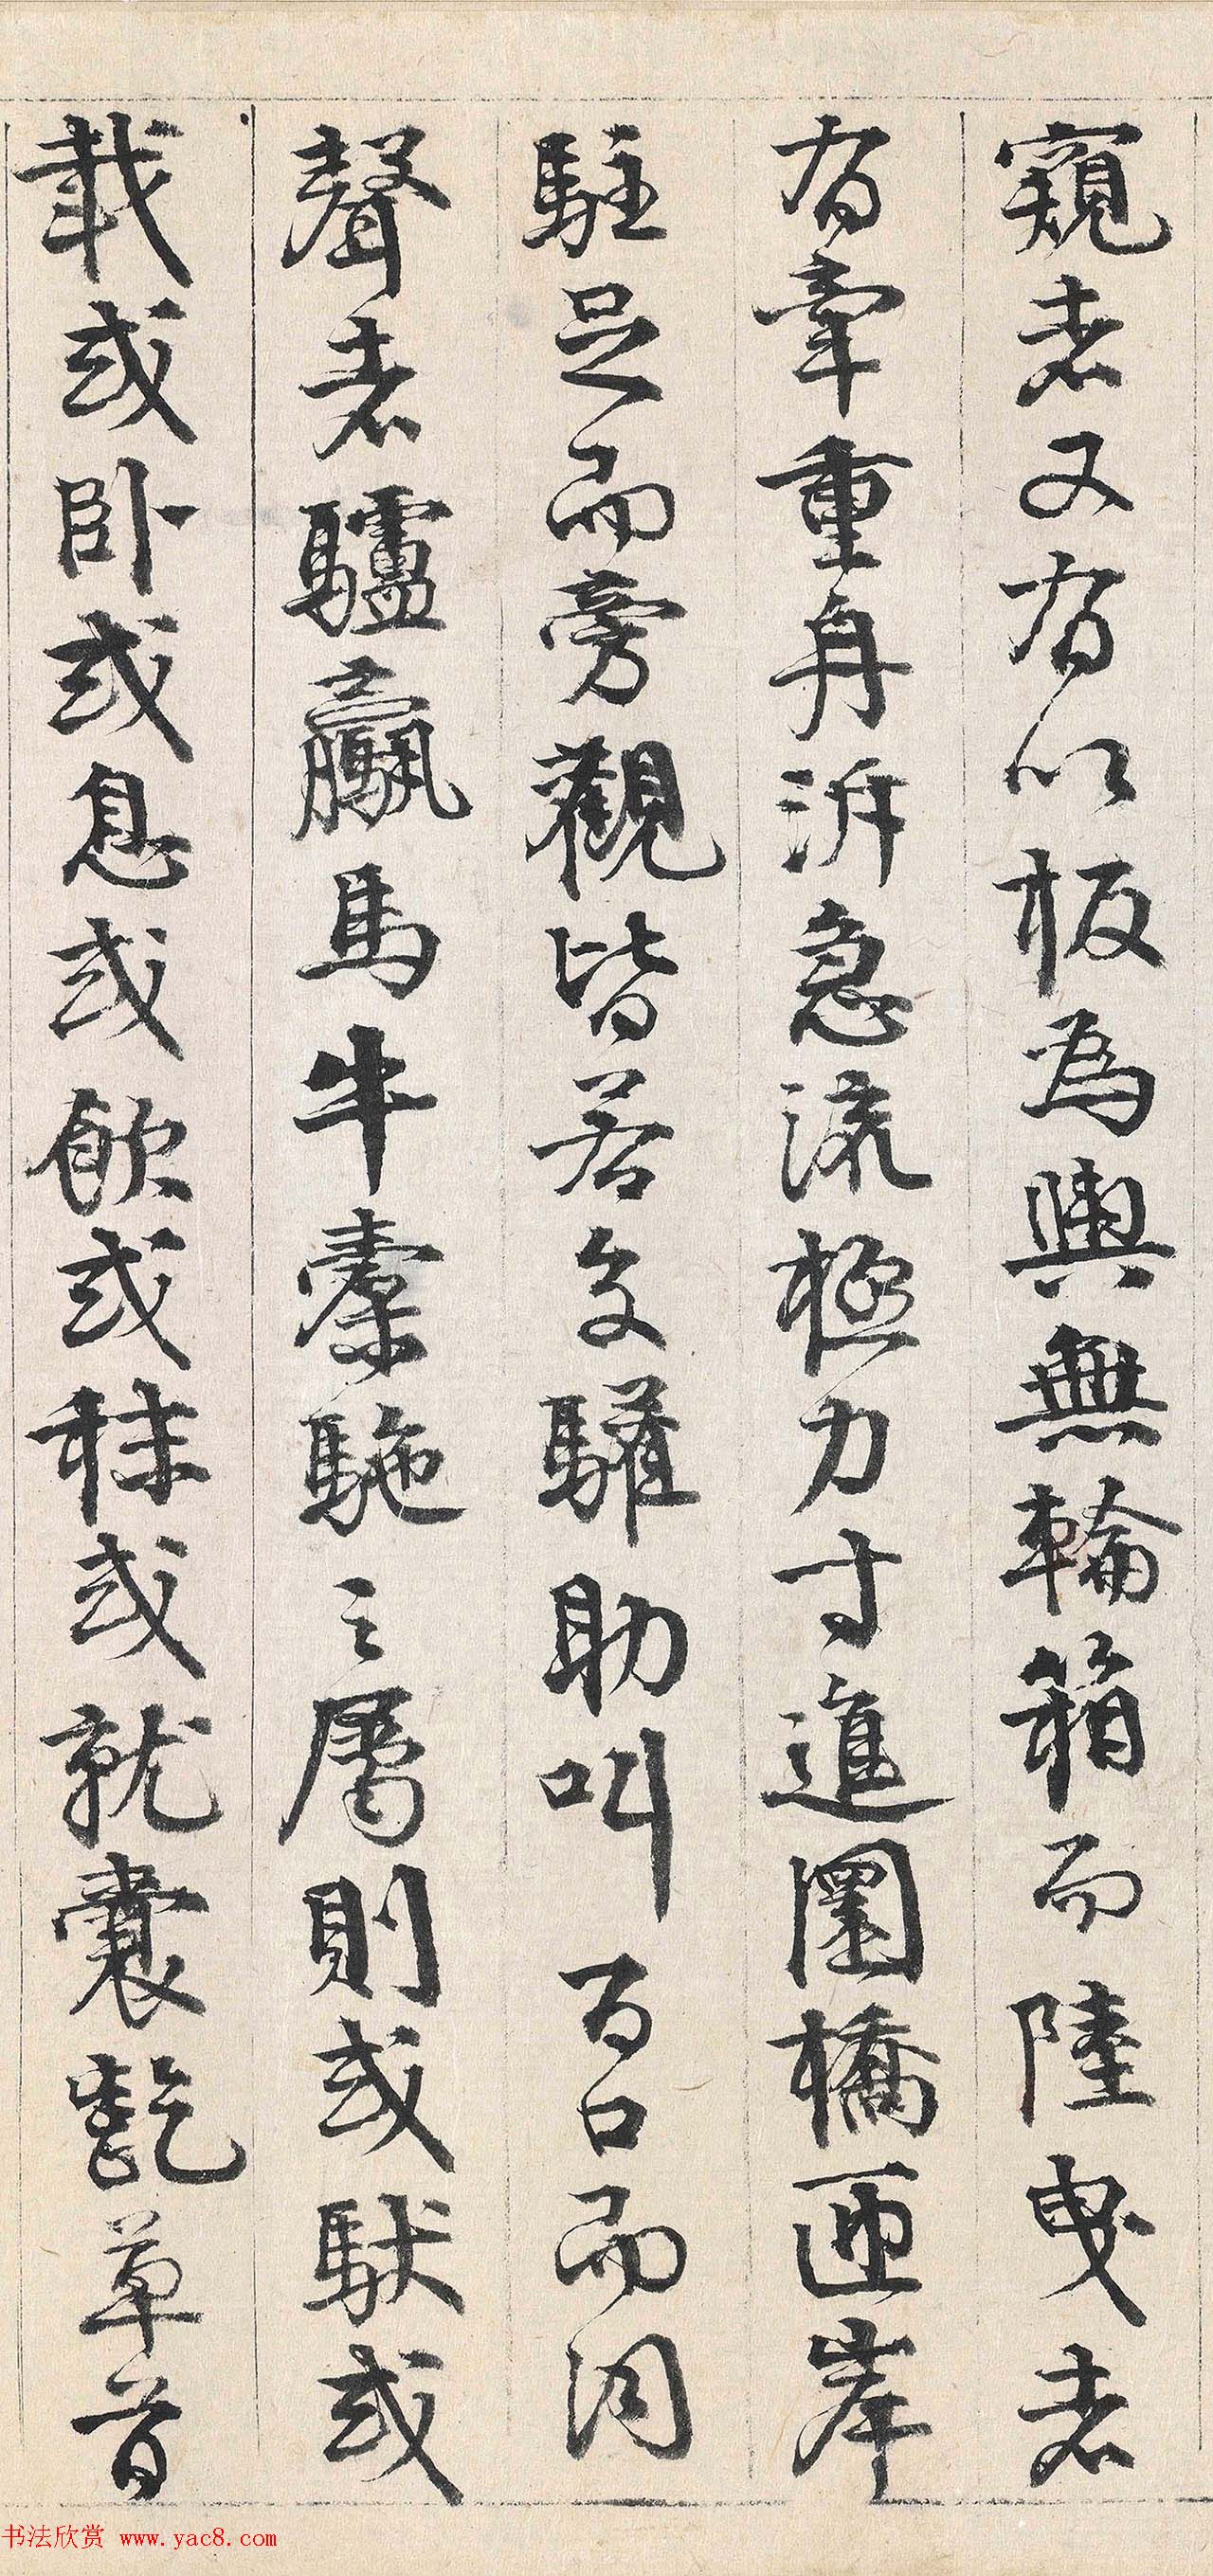 窺者又有以板為輿無輪箱而陸曳者
有牽重舟泝急流極力寸進圜橋匝岸
駐足而旁觀皆若交驩助叫百口而同
聲者驢驘馬牛橐駞之屬則或馱或
載或臥或息或飲或秣或就囊齕草首
书法欣赏 www.yac8.com